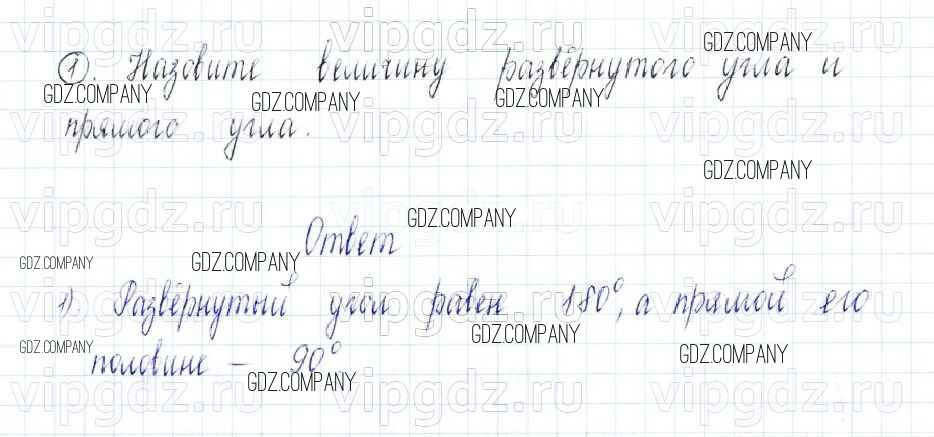 ① Назовите величину развёрнутого угла и
прямого угла.
Ответ
1) Развёрнутый угол равен 180°, а прямой его
половине – 90°
GDZ.COMPANY
GDZ.COMPANY
GDZ.COMPANY
GDZ.COMPANY
GDZ.COMPANY
GDZ.COMPANY
GDZ.COMPANY
GDZ.COMPANY
GDZ.COMPANY
GDZ.COMPANY
GDZ.COMPANY
GDZ.COMPANY
vipgdz.ru vipgdz.ru vipgdz.ru
vipgdz.ru vipgdz.ru vipgdz.ru
vipgdz.ru vipgdz.ru vipgdz.ru
vipgdz.ru vipgdz.ru vipgdz.ru
vipgdz.ru vipgdz.ru vipgdz.ru